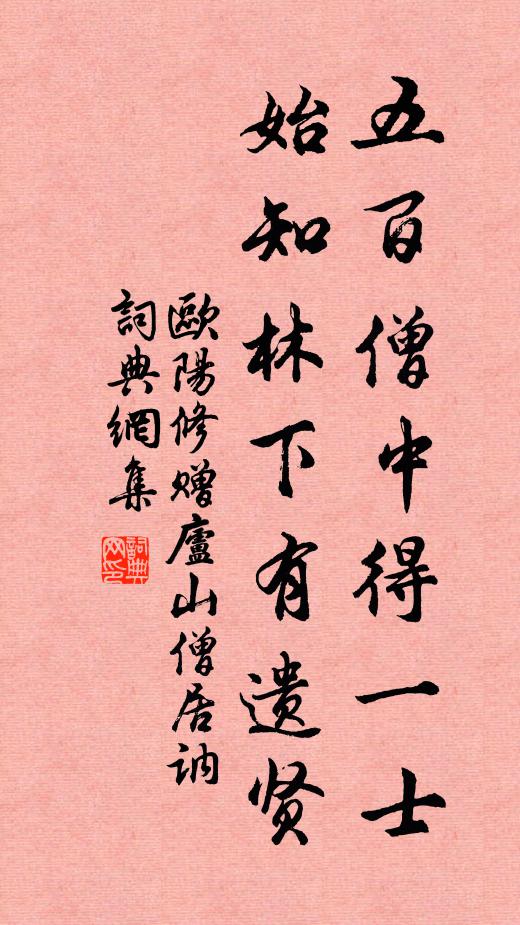 五百僧中得一士
始知林下有遺贤
歐陽修赠廬山僧居讷
詞典網集
詞典网印